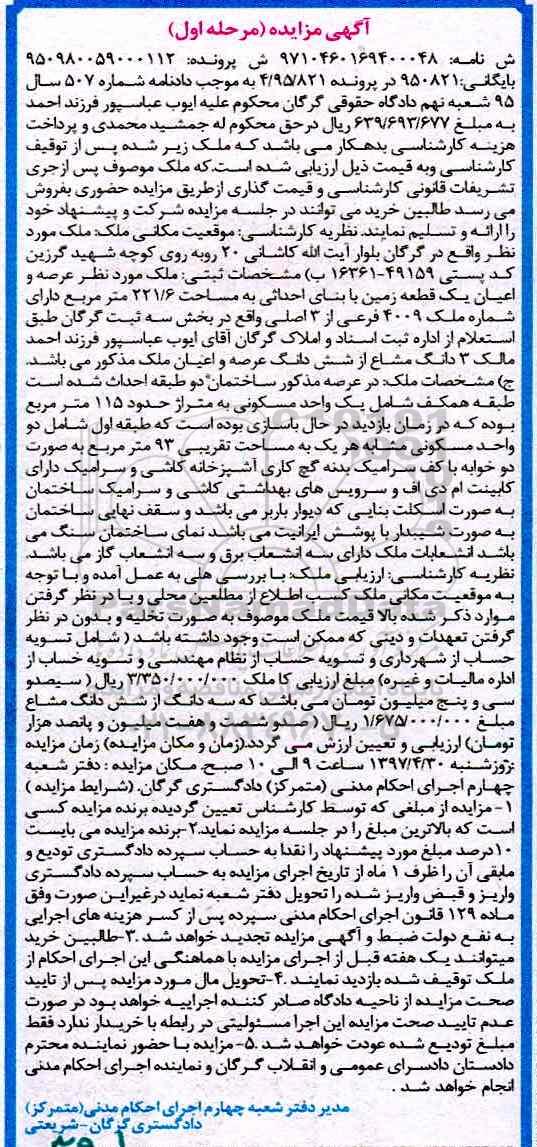 آگهی مزایده (مرحله اول)
ش نامه: ۹۷۱۰۴۶۰۱۶۹۴۰۰۰۴۸ ش پرونده: ۹۵۰۹۸۰۰۵۹۰۰۰۱۱۲
بایگانی: ۹۵۰۸۲۱ در پرونده ۴/۹۵/۸۲۱ به موجب دادنامه شماره ۵۰۷ سال
۹۵ شعبه نهم دادگاه حقوقی گرگان محکوم علیه ایوب عباسپور فرزند احمد
به مبلغ ۶۳۹/۶۹۳/۶۷۷ ریال درحق محکوم له جمشید محمدی و پرداخت
هزینه کارشناسی بدهکار می باشد که ملک زیر شده پس از توقیف
کارشناسی وبه قیمت ذیل ارزیابی شده است.که ملک موصوف پس ازجری
تشریفات قانونی کارشناسی و قیمت گذاری ازطریق مزایده حضوری بفروش
می رسد طالبین خرید می توانند در جلسه مزایده شرکت و پیشنهاد خود
را ارائه و تسلیم نمایند. نظریه کارشناسی: موقعیت مکانی ملک: ملک مورد
نظر واقع در گرگان بلوار آیت الله کاشانی ۲۰ روبه روی کوچه شهید گرزین
کد پستی ۴۹۱۵۹-۱۶۳۶۱ ب) مشخصات ثبتی: ملک مورد نظر عرصه و
اعیان یک قطعه زمین با بنای احداثی به مساحت ۲۲۱/۶ متر مربع دارای
شماره ملک ۴۰۰۹ فرعی از ۳ اصلی واقع در بخش سه ثبت گرگان طبق
استعلام از اداره ثبت اسناد و املاک گرگان آقای ایوب عباسپور فرزند احمد
مالک ۳ دانگ مشاع از شش دانگ عرصه و اعیان ملک مذکور می باشد.
ج) مشخصات ملک: در عرصه مذکور ساختمان دو طبقه احداث شده است
طبقه همکف شامل یک واحد مسکونی به متراژ حدود ۱۱۵ متر مربع
بوده که در زمان بازدید در حال باسازی بوده است که طبقه اول شامل دو
واحد مسکونی مشابه هر یک به مساحت تقریبی ۹۳ متر مربع به صورت
دو خوابه با کف سرامیک بدنه گچ کاری آشپزخانه کاشی و سرامیک دارای
کابینت ام دی اف و سرویس های بهداشتی کاشی و سرامیک ساختمان
به صورت اسکلت بنایی که دیوار باربر می باشد و سقف نهایی ساختمان
به صورت شیبدار با پوشش ایرانیت می باشد نمای ساختمان سنگ می
باشد انشعابات ملک دارای سه انشعاب برق و سه انشعاب گاز می باشد.
نظریه کارشناسی: ارزیابی ملک: با بررسی هلی به عمل آمده و با توجه
به موقعیت مکانی ملک کسب اطلاع از مطلعین محلی و با در نظر گرفتن
موارد ذکر شده بالا قیمت ملک موصوف به صورت تخلیه و بدون در نظر
گرفتن تعهدات و دینی که ممکن است وجود داشته باشد ( شامل تسویه
حساب از شهرداری و تسویه حساب از نظام مهندسی و تسویه خساب از
اداره مالیات و غیره) مبلغ ارزیابی کا ملک ۳/۳۵۰/۰۰۰/۰۰۰ ریال ( سیصدو
سی و پنج میلیون تومان می باشد که سه دانگ از شش دانگ مشاع
مبلغ ۱/۶۷۵/۰۰۰/۰۰۰ ریال ( صدو شصت و هفت میلیون و پانصد هزار
تومان) ارزیابی و تعیین ارزش می گردد.(زمان و مکان مزایده) زمان مزایده
:روزشنبه ۱۳۹۷/۴/۳۰ ساعت ۹ الی ۱۰ صبح. مکان مزایده : دفتر شعبه
چهارم اجرای احکام مدنی (متمرکز) دادگستری گرگان. (شرایط مزایده )
۱- مزایده از مبلغی که توسط کارشناس تعیین گردیده برنده مزایده کسی
است که بالاترین مبلغ را در جلسه مزایده نماید.۲-برنده مزایده می بایست
۱۰درصد مبلغ مورد پیشنهاد را نقدا به حساب سپرده دادگستری تودیع و
مابقی آن را ظرف ۱ ماه از تاریخ اجرای مزایده به حساب سپرده دادگستری
واریز و قبض واریز شده را تحویل دفتر شعبه نماید درغیراین صورت وفق
ماده ۱۲۹ قانون اجرای احکام مدنی سپرده پس از کسر هزینه های اجرایی
به نفع دولت ضبط و آگهی مزایده تجدید خواهد شد .۳-طالبین خرید
میتوانند یک هفته قبل از اجرای مزایده با هماهنگی این اجرای احکام از
ملک توقیف شده بازدید نمایند .۴-تحویل مال مورد مزایده پس از تایید
صحت مزایده از ناحیه دادگاه صادر کننده اجراییه خواهد بود در صورت
عدم تایید صحت مزایده این اجرا مسئولیتی در رابطه با خریدار ندارد فقط
مبلغ تودیع شده عودت خواهد شد .۵-مزایده با حضور نماینده محترم
دادستان دادسرای عمومی و انقلاب گرگان و نماینده اجرای احکام مدنی
انجام خواهد شد .
مدیر دفتر شعبه چهارم اجرای احکام مدنی(متمرکز)
دادگستری گرگان -شریعتی